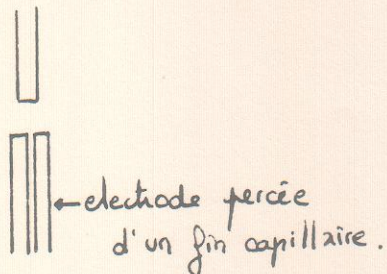 electrode percée
d'un fin capillaire.